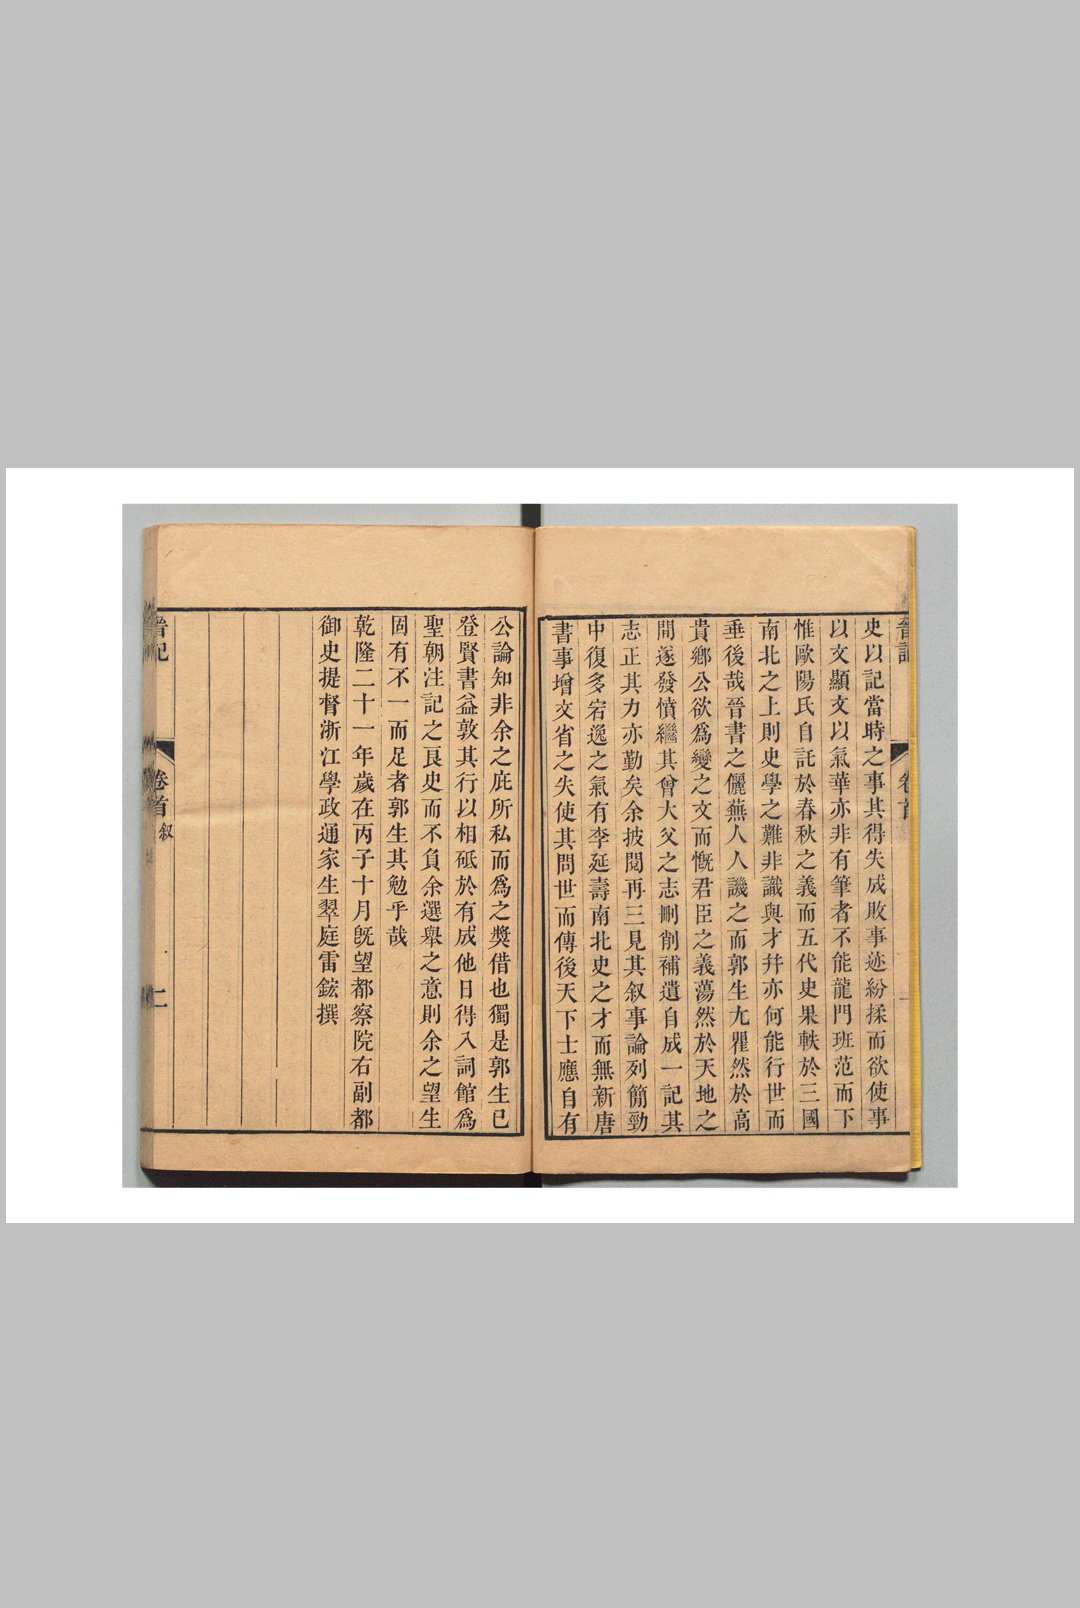 史以記當時之事其得失成敗事迹紛揉而欲使事
以文顯文以氣華亦非有筆者不能龍門班范而下
惟歐陽氏自託於春秋之義而五代史果軼於三國
南北之上則史學之難非識與才幷亦何能行世而
垂後哉晉書之儷蕪人人譏之而郭生尢瞿然於高
貴鄉公欲爲變之文而慨君臣之義蕩然於天地之
間遂發憤繼其曾大父之志刪削補遺自成一記其
志正其力亦勤矣余披閱再三見其叙事論列簡勁
中復多宕逸之氣有李延壽南北史之才而無新唐
書事增文省之失使其問世而傳後天下士應自有
公論知非余之庇所私而爲之獎借也獨是郭生已
登賢書益敦其行以相砥於有成他日得入詞館爲
聖朝注記之良史而不負余選舉之意則余之望生
固有不一而足者郭生其勉乎哉
乾隆二十一年歲在丙子十月旣望都察院右副都
御史提督浙江學政通家生翠庭雷鋐撰
晉記
卷首
叙
二